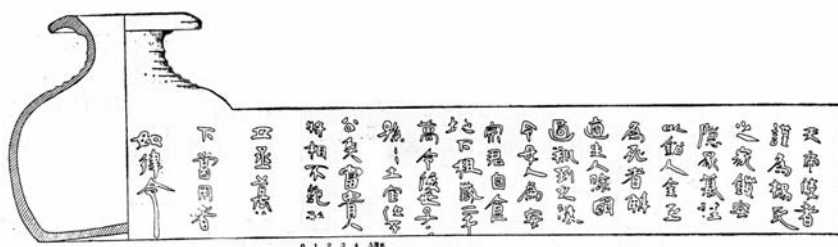 天帝使者
謹為楊氏
之家鎮安
隱冢墓謹
以鉛人金玉
為死者解
適生人除罪
過瓶到之後
令母人為安
宗君自食
地下租歲二千
萬令後世子〻
孫〻士宦位至
公侯富貴
將相不絕移
丘丞墓伯
下當用者
如律令
0 1 2 3 4 5厘米